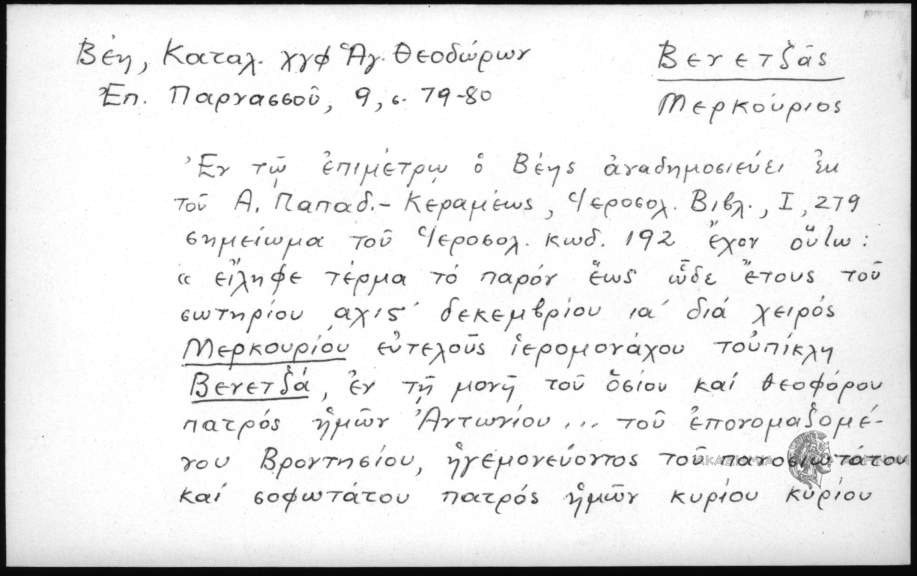 Βέη, Καταλ. χγφ Ἁγ. Θεοδώρων
Βενετζᾶς
Ἐπ. Παρνασσοῦ, 9, σ. 79-80
Μερκούριος
Ἐν τῷ ἐπιμέτρῳ ὁ Βέης ἀναδημοσιεύει ἐκ
τοῦ Α. Παπαδ.- Κεραμέως, Ἱεροσολ. Βιβλ., Ι, 279
σημείωμα τοῦ Ἱεροσολ. κωδ. 192 ἔχον οὕτω:
« εἴληφε τέρμα τό παρόν ἕως ὧδε ἔτους τοῦ
σωτηρίου αχις΄ δεκεμβρίου ια΄ διά χειρός
Μερκουρίου εὐτελοῦς ἱερομονάχου τοὐπίκλη
Βενετζᾶ, ἐν τῇ μονῇ τοῦ ὁσίου καί θεοφόρου
πατρός ἡμῶν Ἀντωνίου ... τοῦ ἐπονομαζομέ-
νου Βροντησίου, ἡγεμονεύοντος τοῦ πανοσιωτάτου
καί σοφωτάτου πατρός ἡμῶν κυρίου κυρίου